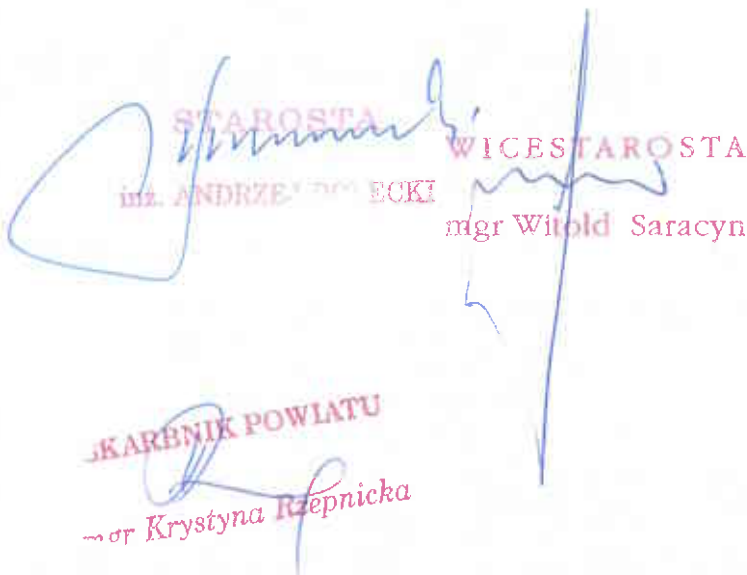 STAROSTA
inż. ANDRZE ECKI
WICESTAROSTA
mgr Witold Saracyn
SKARBNIK POWIATU
mgr Krystyna Rzepnicka